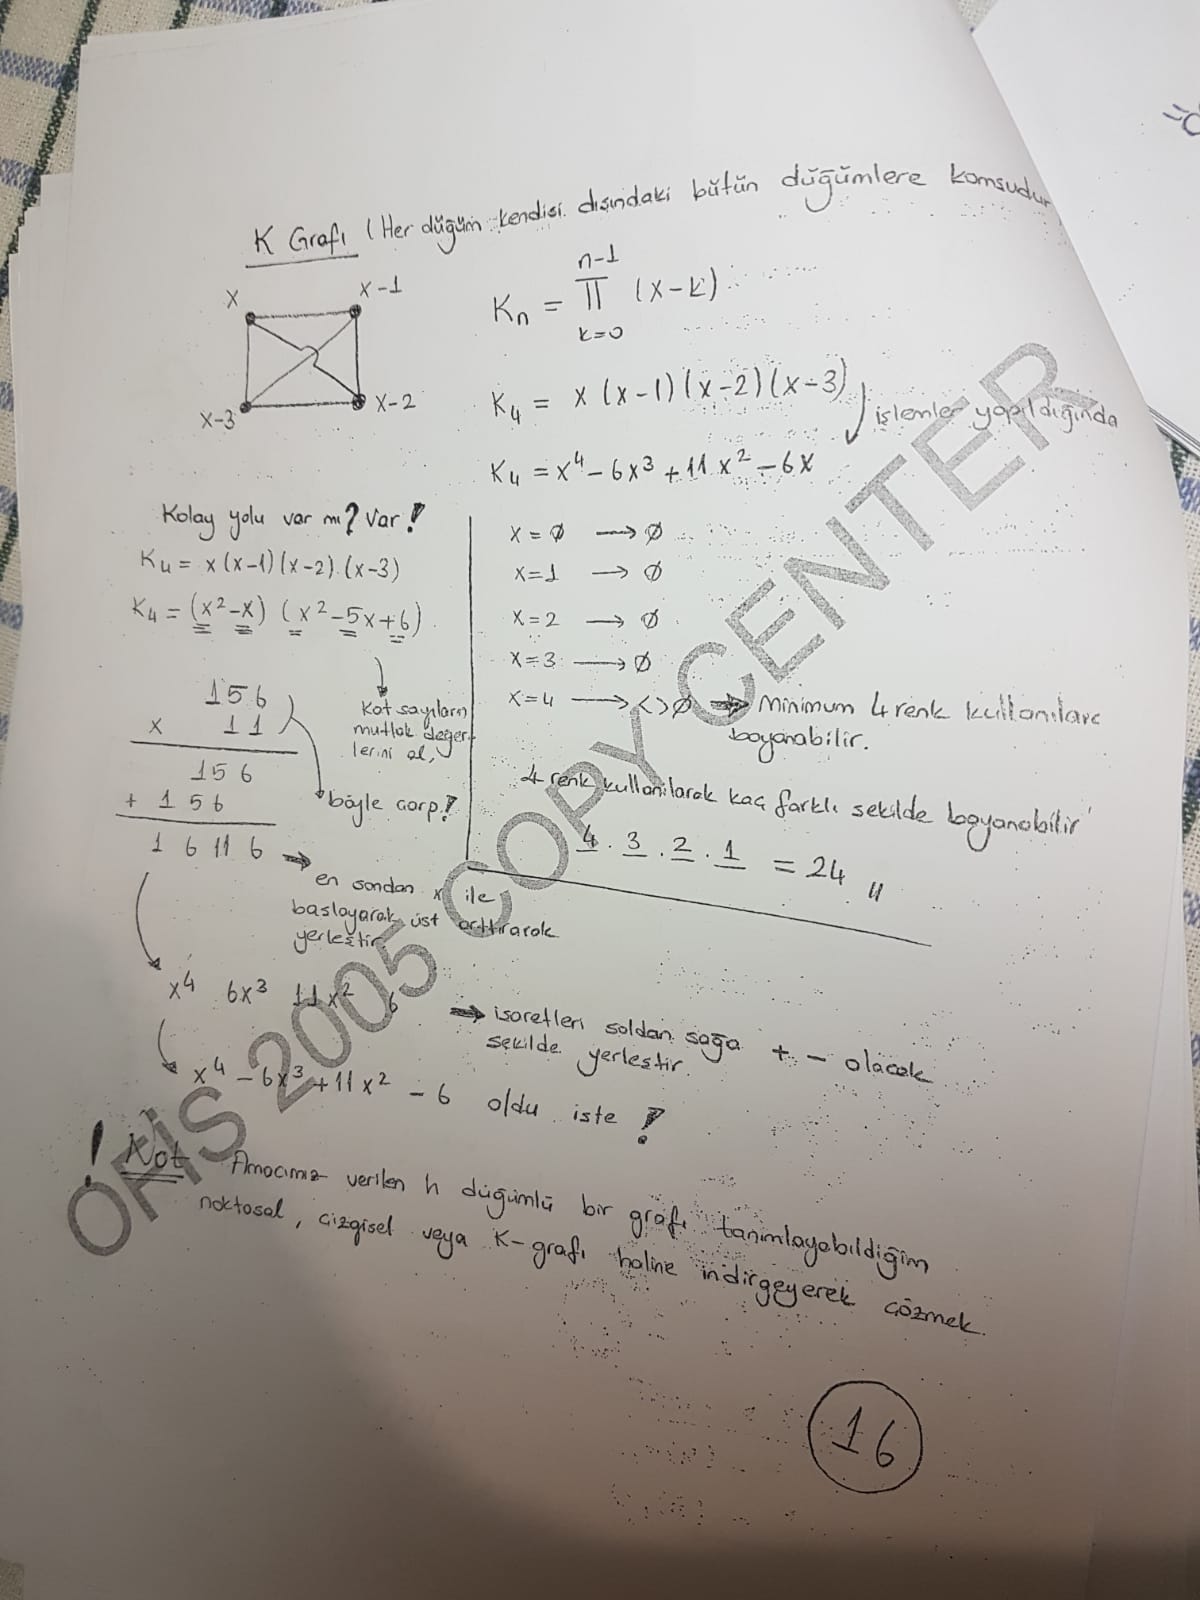 K Grafı (Her düğüm kendisi dışındaki bütün düğümlere komşudur
x
x-1
x-3
x-2
n-1
Kn = π (x-k)
k=0
K4 = x (x-1) (x-2) (x-3)
işlemler yapıldığında
K4 = x⁴ - 6x³ + 11x² - 6x
Kolay yolu var mı? Var!
K4 = x(x-1)(x-2).(x-3)
K4 = (x²-x) (x²-5x+6)
Kat sayıların
mutlak değer-
lerini al,
156
x 11
156
+ 156
böyle çarp!
1 6 11 6
en sondan x ile
başlayarak üst arttırarak
yerleştir.
x⁴ 6x³ 11x² 6
işaretleri soldan sağa + - olacak
şekilde yerleştir.
x⁴ - 6x³ + 11x² - 6 oldu işte !
x = ∅ → ∅
x=1 → ∅
x=2 → ∅
x=3 → ∅
x=4 → <>∅ → Minimum 4 renk kullanılarc
boyanabilir.
4 renk kullanılarak kaç farklı şekilde boyanabilir
4 . 3 . 2 . 1 = 24 "
! Not Amacımız verilen n düğümlü bir grafı tanımlayabildiğim
noktasal, çizgisel veya K-grafı haline indirgeyerek çözmek.
16
OFİS 2005 COPY CENTER